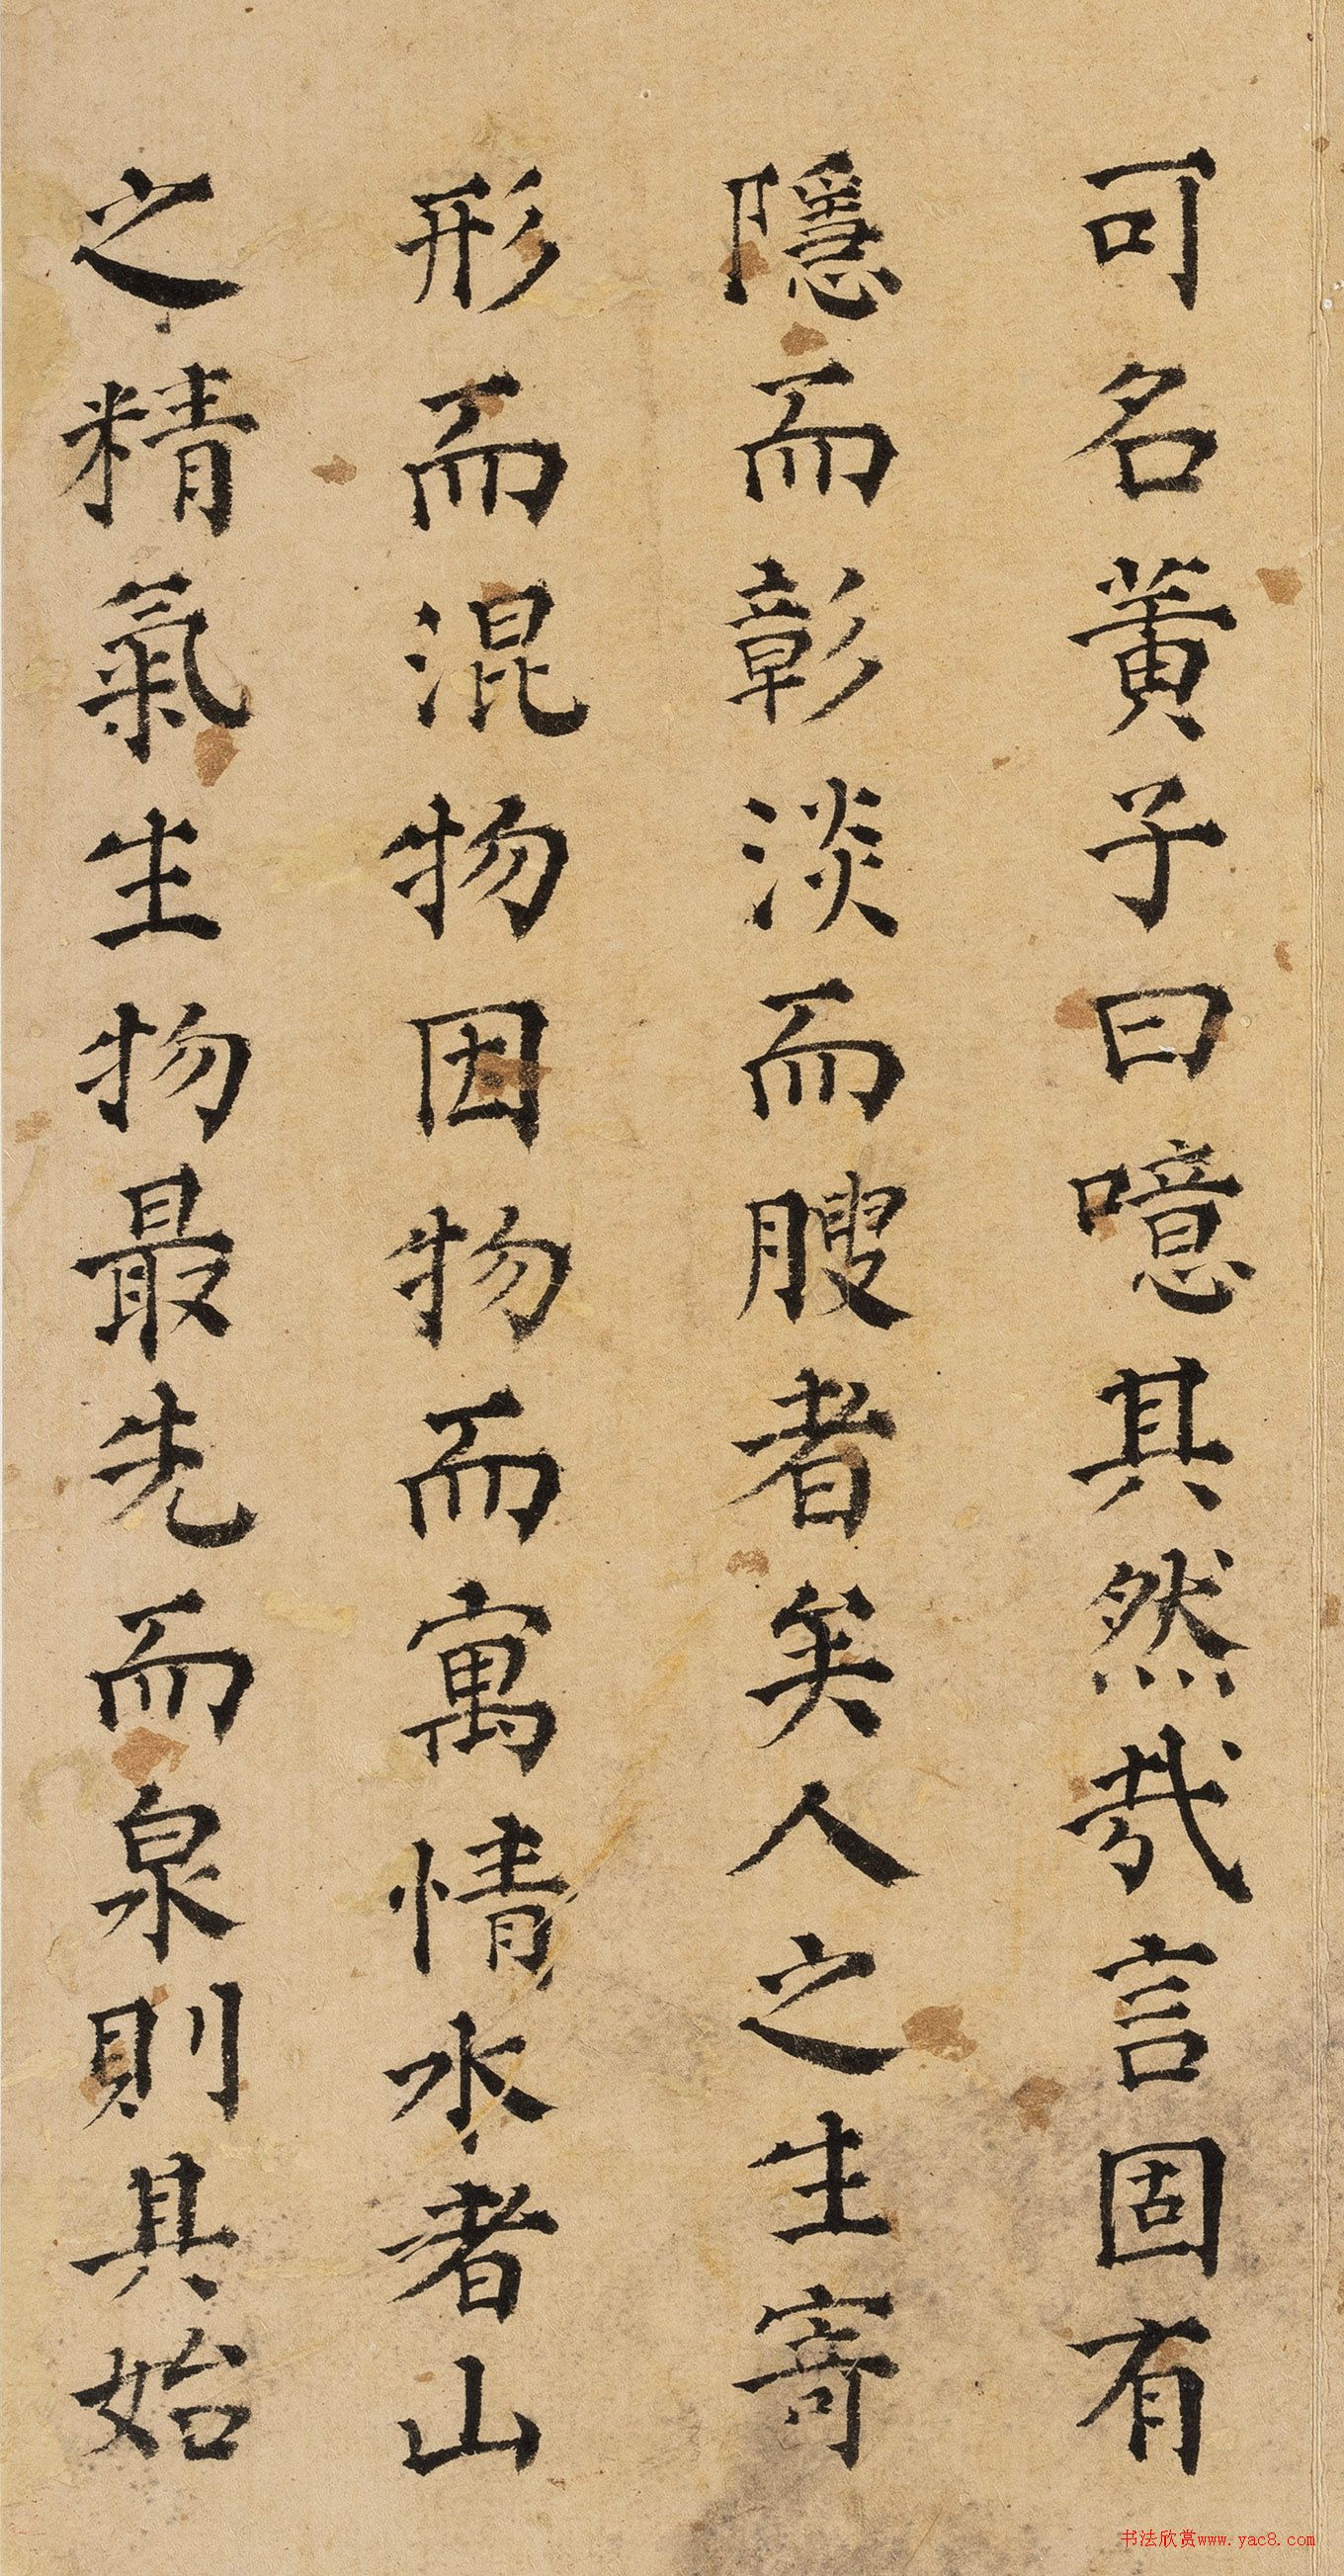 可名黃子曰噫其然哉言固有
隱而彰淡而腴者矣人之生寄
形而混物因物而寓情水者山
之精氣生物最先而泉則其始
书法欣赏www.yac8.com